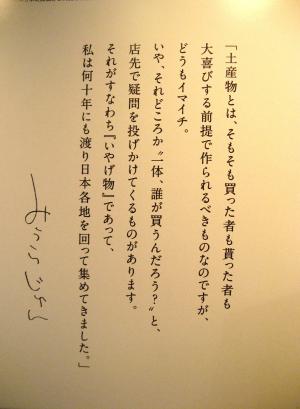 「土産物とは、そもそも買った者も貰った者も
大喜びする前提で作られるべきものなのですが、
どうもイマイチ。
いや、それどころか〝一体、誰が買うんだろう？〟と、
店先で疑問を投げかけてくるものがあります。
それがすなわち『いやげ物』であって、
私は何十年にも渡り日本各地を回って集めてきました。」
みうらじゅん